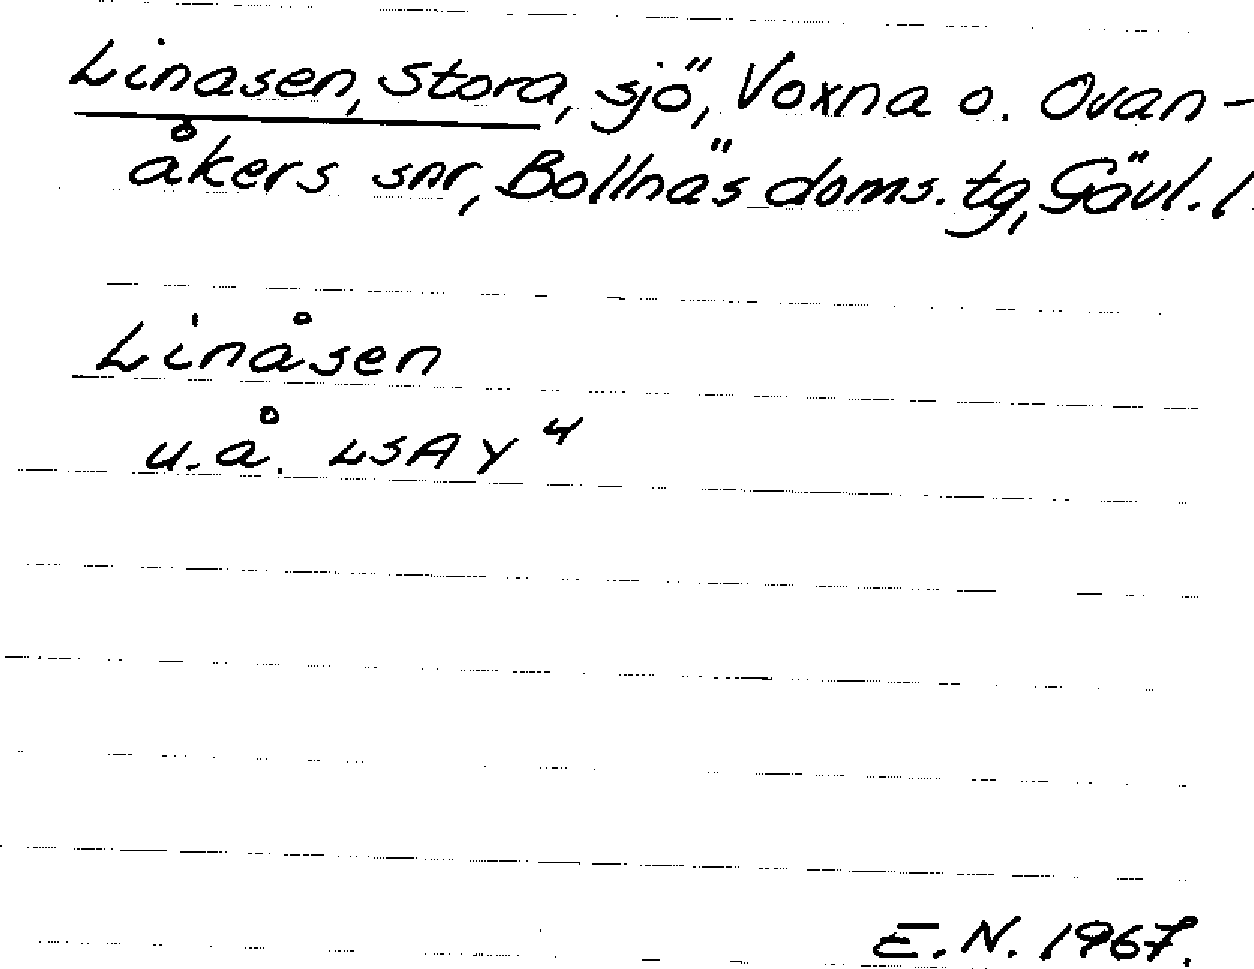 Linasen, Stora, sjö, Voxna o. Ovan-
åkers snr, Bollnäs doms. tg, Gävl. l.
Linåsen
u.å. LSA Y 4
E.N. 1967.